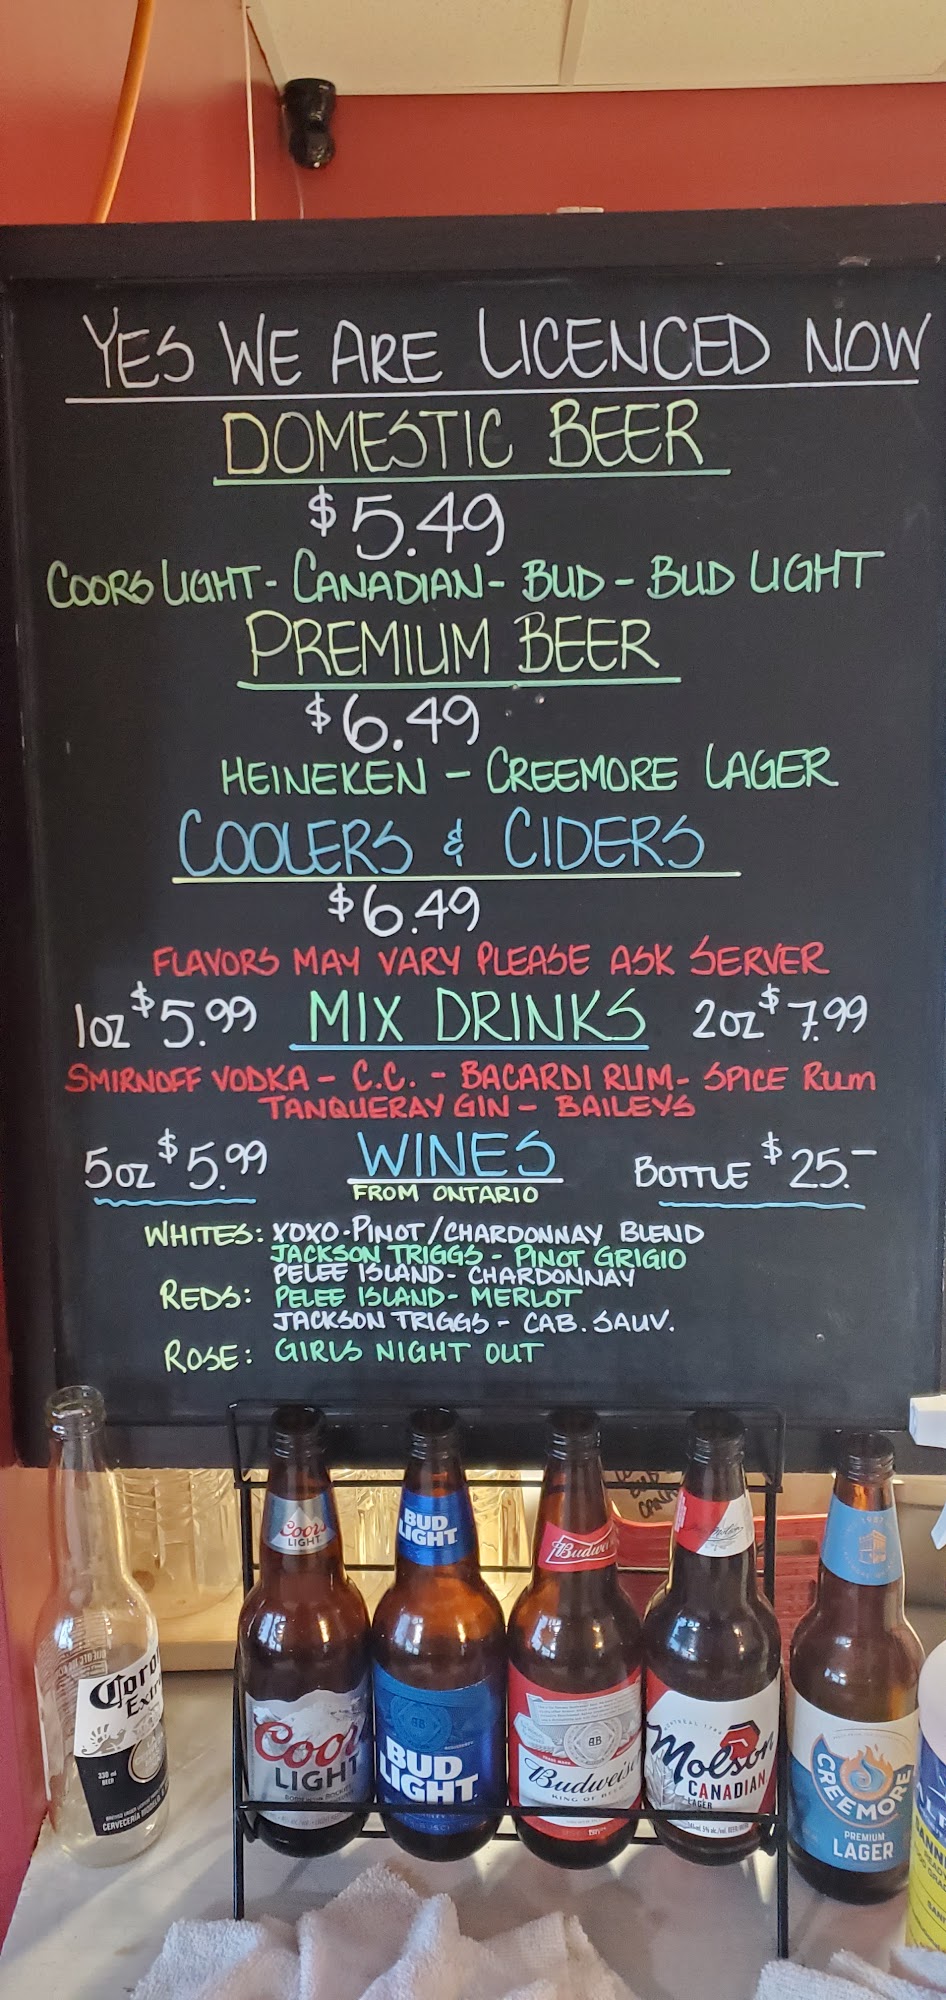 YES WE ARE LICENCED NOW
DOMESTIC BEER
$5.49
COORS LIGHT - CANADIAN - BUD - BUD LIGHT
PREMIUM BEER
$6.49
HEINEKEN - CREEMORE LAGER
COOLERS & CIDERS
$6.49
FLAVORS MAY VARY PLEASE ASK SERVER
1oz $5.99 MIX DRINKS 2oz $7.99
SMIRNOFF VODKA - C.C. - BACARDI RUM - SPICE RUM
TANQUERAY GIN - BAILEYS
5oz $5.99 WINES BOTTLE $25.-
FROM ONTARIO
WHITES: XOXO - PINOT/CHARDONNAY BLEND
JACKSON TRIGGS - PINOT GRIGIO
PELEE ISLAND - CHARDONNAY
REDS: PELEE ISLAND - MERLOT
JACKSON TRIGGS - CAB. SAUV.
ROSE: GIRLS NIGHT OUT
Coors
LIGHT
BUD
LIGHT
Budweiser
Molson
1987
Corona
Extra
330 ml
BEER
CERVECERIA MODELO
Coors
LIGHT
BUD
LIGHT
Budweiser
KING OF BEERS
Molson
CANADIAN
LAGER
CREEMORE
PREMIUM
LAGER